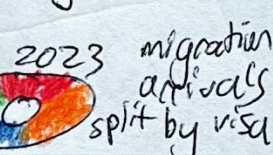 2023 migration
arrivals
split by visa